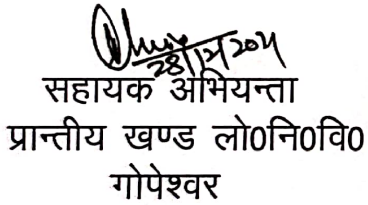 सहायक अभियन्ता
प्रान्तीय खण्ड लो0नि0वि0
गोपेश्वर